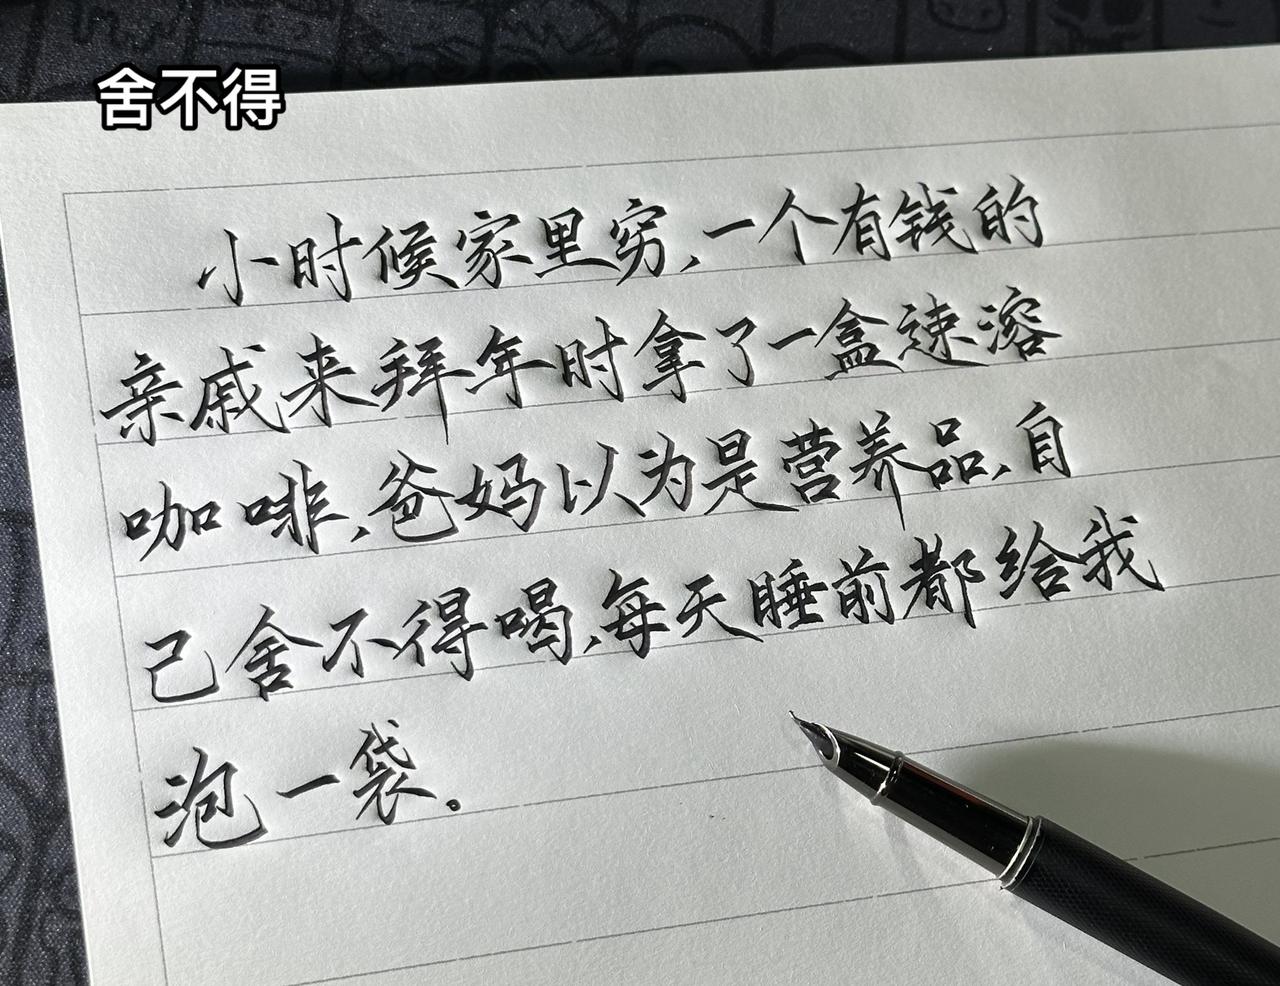 舍不得
小时候家里穷，一个有钱的
亲戚来拜年时拿了一盒速溶
咖啡，爸妈以为是营养品，自
己舍不得喝，每天睡前都给我
泡一袋。